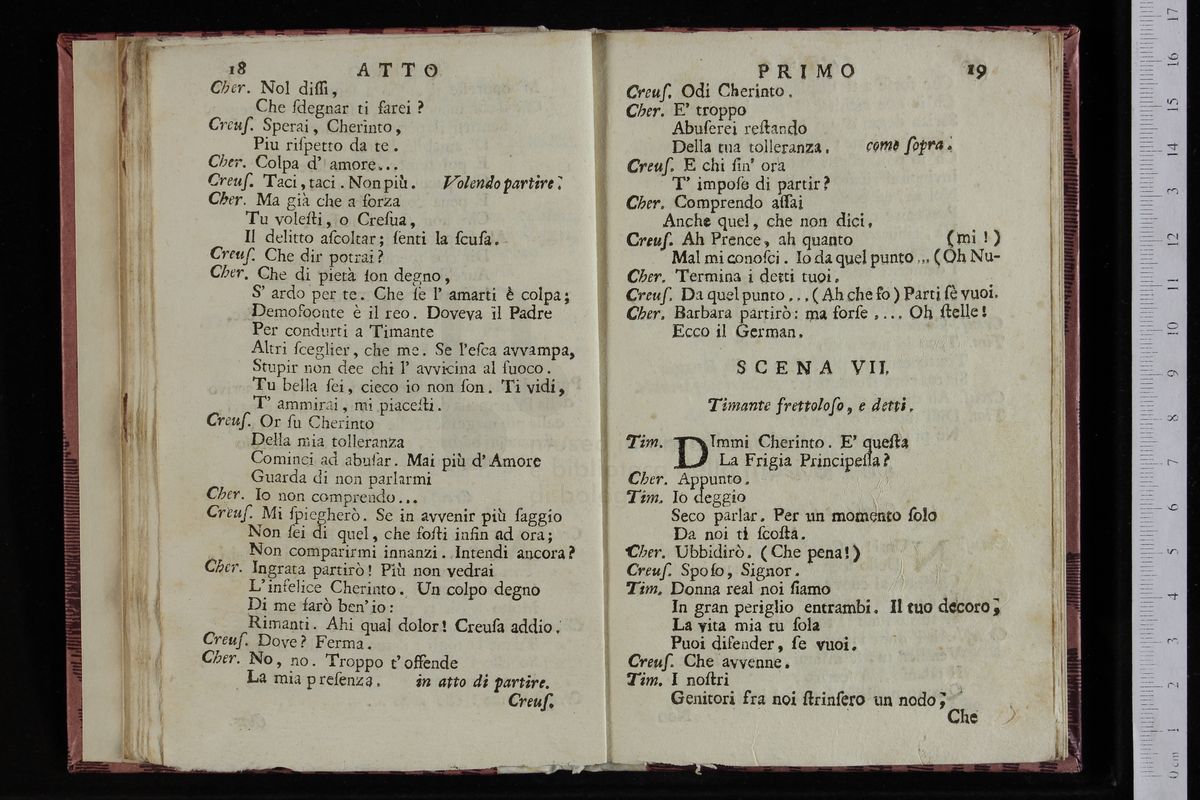 18 ATTO
Cher. Nol diſſi,
Che ſdegnar ti farei?
Creuſ. Sperai, Cherinto,
Piu riſpetto da te.
Cher. Colpa d' amore...
Creuſ. Taci, taci. Non più. Volendo partire.
Cher. Ma già che a forza
Tu voleſti, o Creſua,
Il delitto aſcoltar; ſenti la ſcuſa.
Creuſ. Che dir potrai?
Cher. Che di pietà ſon degno,
S' ardo per te. Che ſe l' amarti è colpa;
Demofoonte è il reo. Doveva il Padre
Per condurti a Timante
Altri ſceglier, che me. Se l'eſca avvampa,
Stupir non dee chi l' avvicina al fuoco.
Tu bella ſei, cieco io non ſon. Ti vidi,
T' ammirai, mi piaceſti.
Creuſ. Or ſu Cherinto
Della mia tolleranza
Cominci ad abuſar. Mai più d' Amore
Guarda di non parlarmi
Cher. Io non comprendo...
Creuſ. Mi ſpiegherò. Se in avvenir più ſaggio
Non ſei di quel, che foſti infin ad ora;
Non comparirmi innanzi. Intendi ancora?
Cher. Ingrata partirò! Più non vedrai
L'infelice Cherinto. Un colpo degno
Di me farò ben'io:
Rimanti. Ahi qual dolor! Creuſa addio.
Creuſ. Dove? Ferma.
Cher. No, no. Troppo t'offende
La mia preſenza. in atto di partire.
Creuſ.
PRIMO 19
Creuſ. Odi Cherinto.
Cher. E' troppo
Abuſerei reſtando
Della tua tolleranza. come ſopra.
Creuſ. E chi fin' ora
T' impoſe di partir?
Cher. Comprendo aſſai
Anche quel, che non dici.
Creuſ. Ah Prence, ah quanto (mi!)
Mal mi conoſci. Io da quel punto... (Oh Nu-
Cher. Termina i detti tuoi.
Creuſ. Da quel punto... (Ah che fo) Parti ſè vuoi.
Cher. Barbara partirò: ma forſe .... Oh ſtelle!
Ecco il German.
SCENA VII.
Timante frettoloſo, e detti.
Tim. DImmi Cherinto. E' queſta
La Frigia Principeſſa?
Cher. Appunto.
Tim. Io deggio
Seco parlar. Per un momento ſolo
Da noi ti ſcoſta.
Cher. Ubbidirò. (Che pena!)
Creuſ. Spoſo, Signor.
Tim. Donna real noi ſiamo
In gran periglio entrambi. Il tuo decoro,
La vita mia tu ſola
Puoi difender, ſe vuoi.
Creuſ. Che avvenne.
Tim. I noſtri
Genitori fra noi ſtrinſero un nodo;
Che